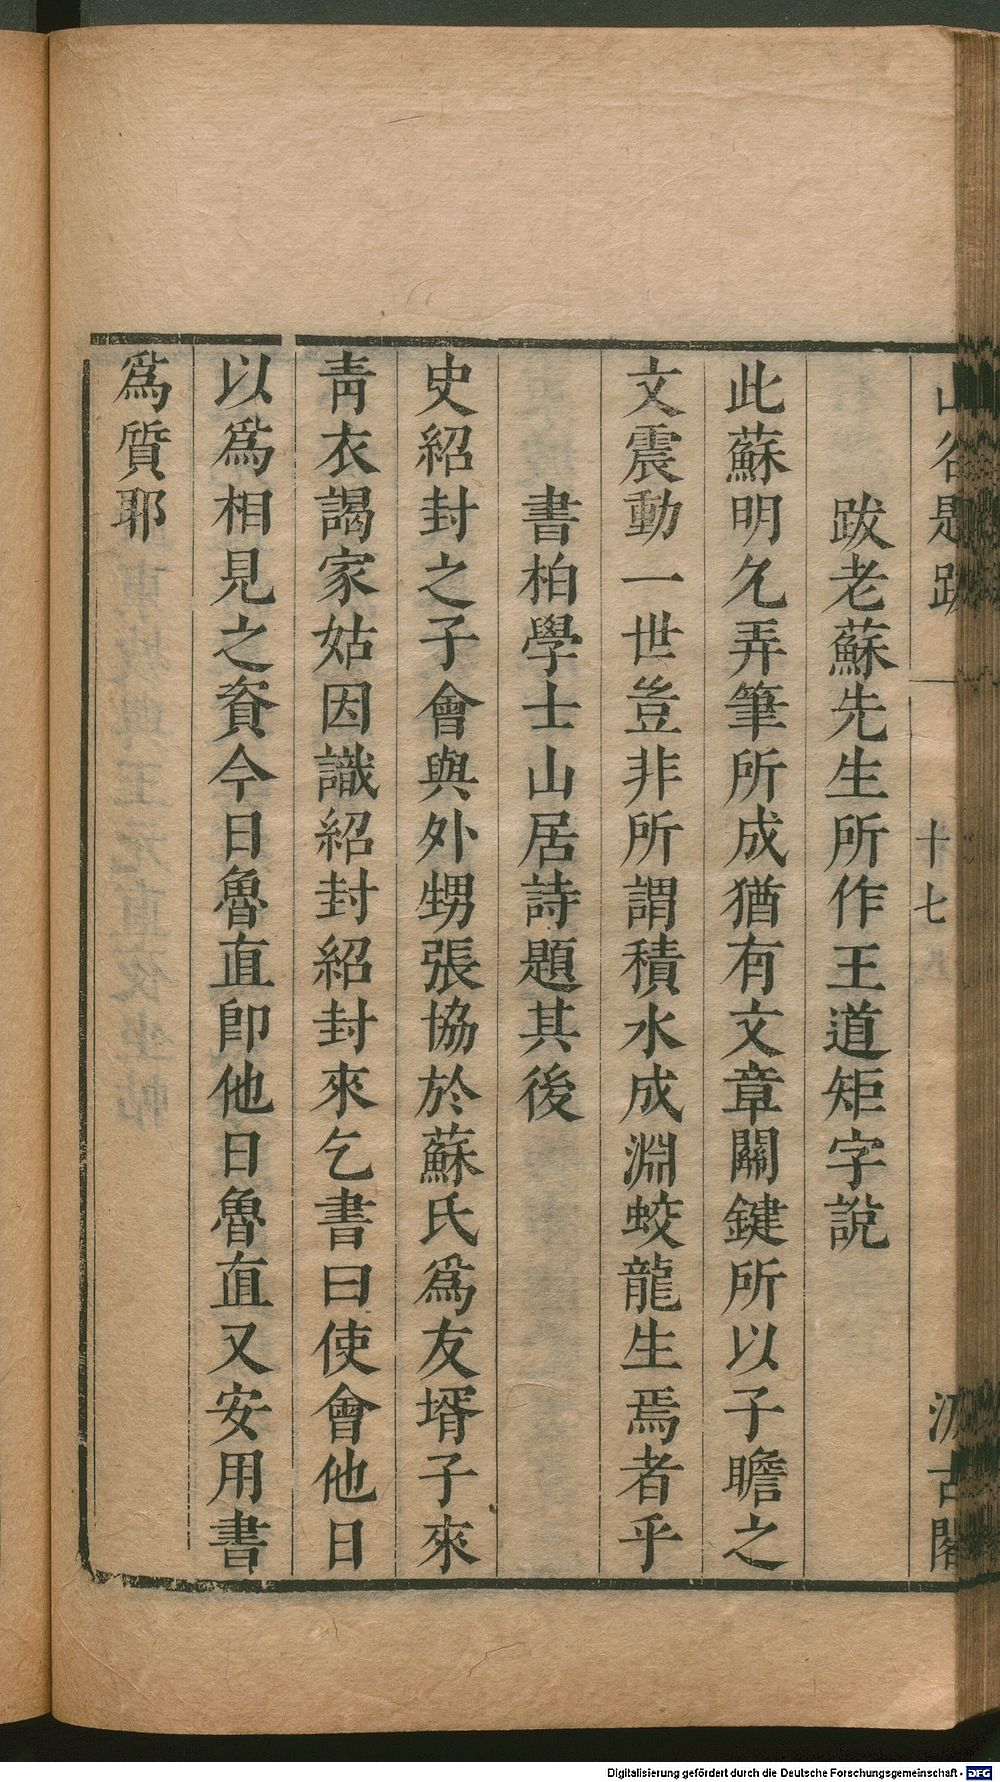 山谷題跋 一 十七 汲古閣
跋老蘇先生所作王道矩字說
此蘇明允弄筆所成猶有文章關鍵所以子瞻之
文震動一世豈非所謂積水成淵蛟龍生焉者乎
書柏學士山居詩題其後
史紹封之子會與外甥張協於蘇氏爲友壻子來
靑衣謁家姑因識紹封紹封來乞書曰使會他日
以爲相見之資今日魯直卽他日魯直又安用書
爲質耶
Digitalisierung gefördert durch die Deutsche Forschungsgemeinschaft - DFG